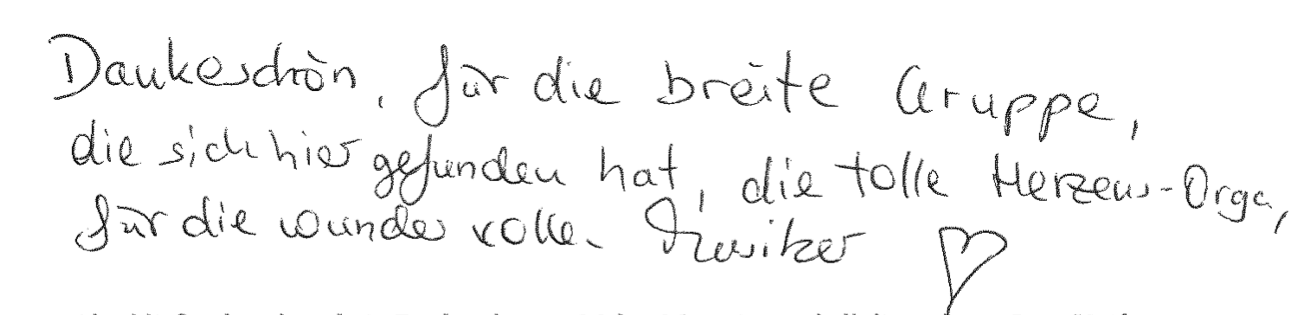 Dankeschön, für die breite Gruppe,
die sich hier gefunden hat, die tolle Herzens-Orga,
für die wundervollen Musiker